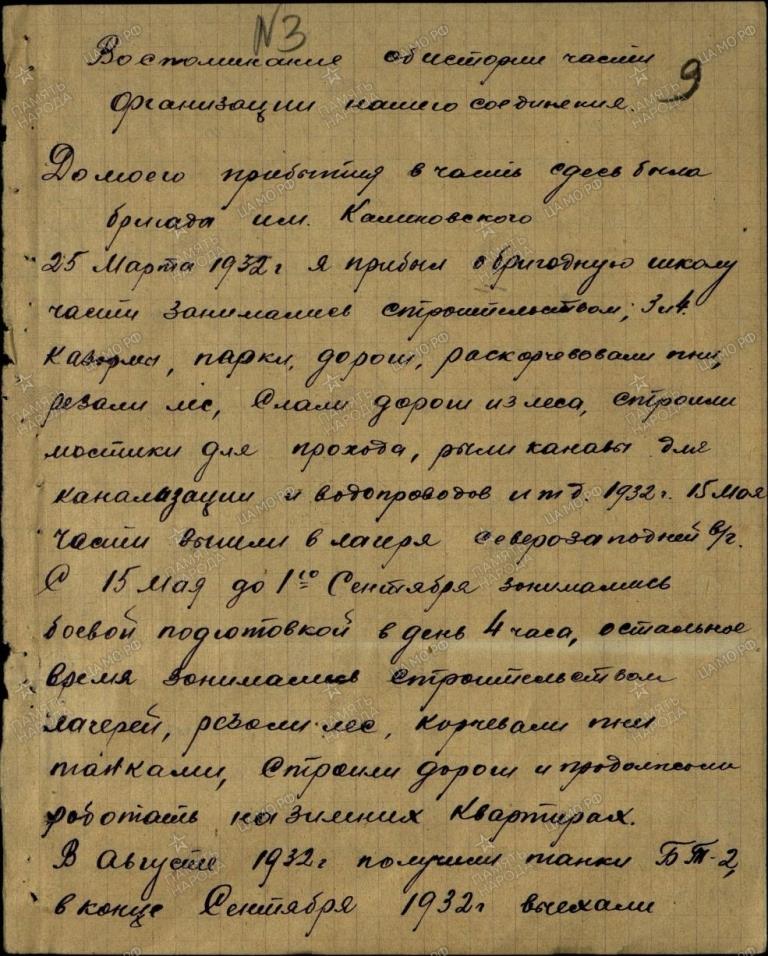 N3
9
Воспоминание об истории части
организации нашего соединения.
До моего прибытия в часть сдесь была
бригада им. Калиновского
25 Марта 1932г я прибыл в бригадную школу
части занимались строительством; 3 и 4.
Казарма, парки, дороги, раскорчевовали пни,
резали лес, Слали дороги из леса, строили
мостики для прохода, рыли канавы для
канализации и водопроводов и т д. 1932г. 15 Мая
части вышли в лагеря северозападней в/г.
С 15 Мая до 1го Сентября зонимались
боевой подготовкой в день 4 часа, остальное
время зонимались строительством
лагерей, резали лес, корчевали пни
танками, Строили дороги и продолжали
работать на зимних Квартирах.
В Августе 1932г получили танки БТ-2,
в конце Сентября 1932г выехали
ПАМЯТЬ НАРОДА
ЦАМО.РФ